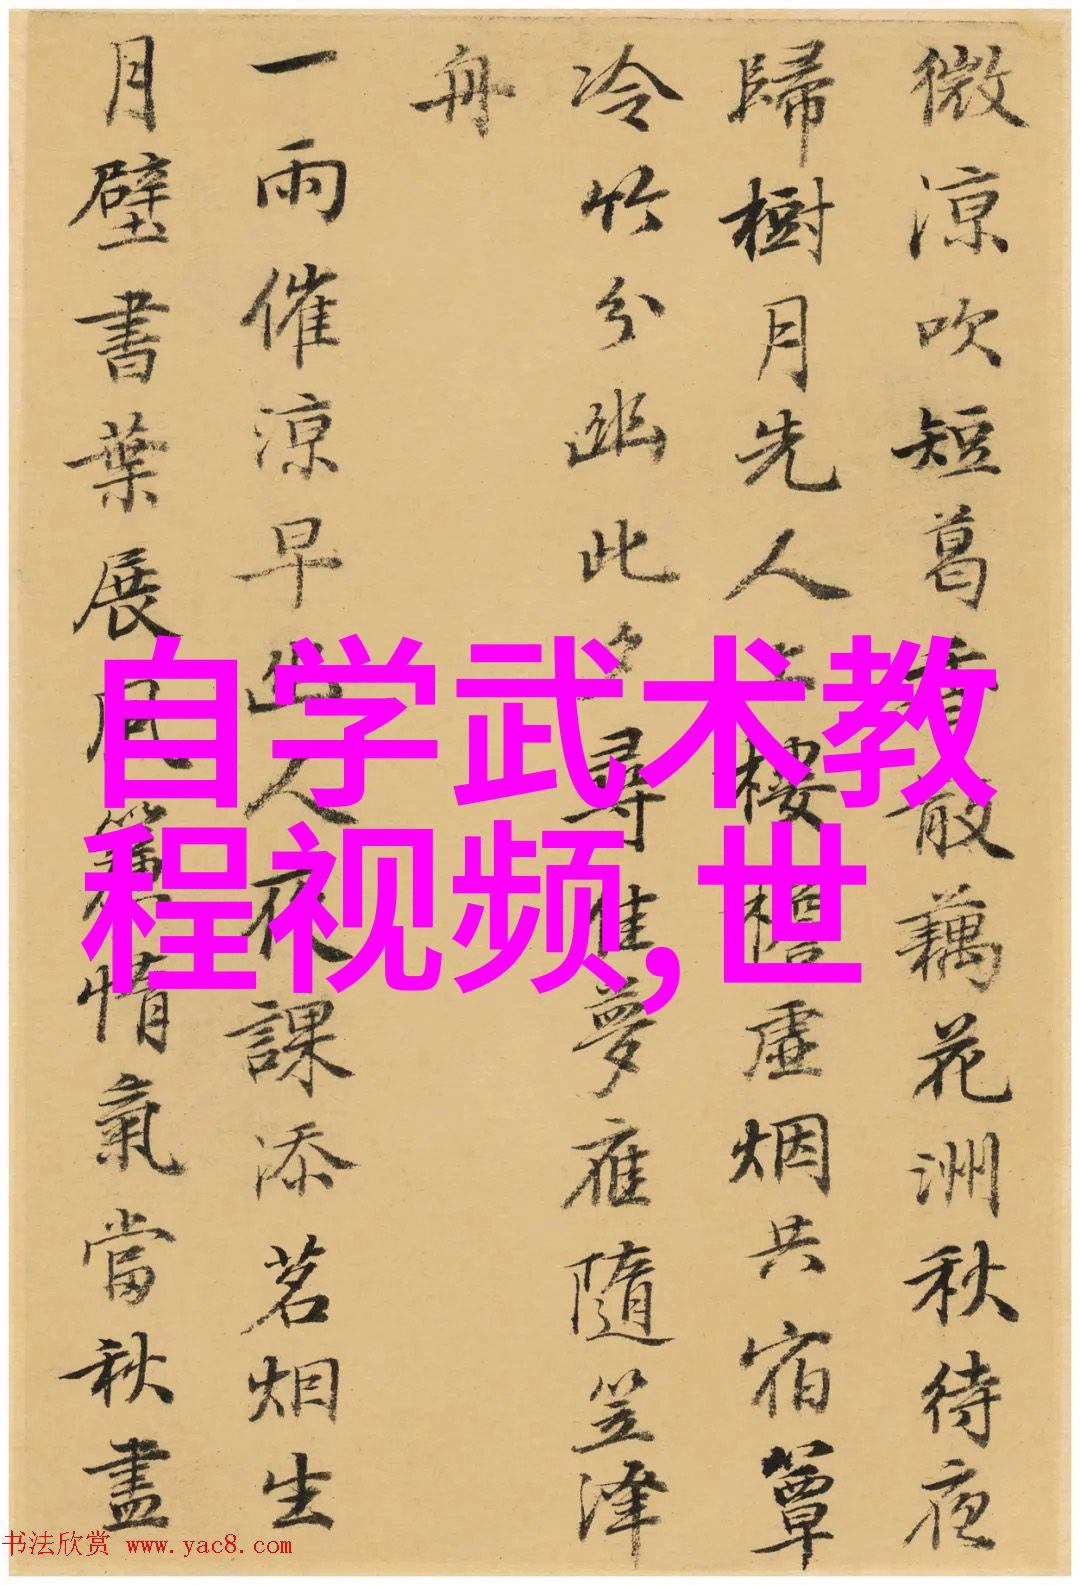 微涼吹短葛香散藕花洲秋待夜
歸樹月先人上樓檐虛烟共宿簟
冷竹分幽此夕尋佳夢隨笠澤
舟
一雨催涼早幽人夜課添茗烟生
月壁書葉展風簾惰氣當秋盡
自学武术教
程视频,世
书法欣赏 www.yac8.com